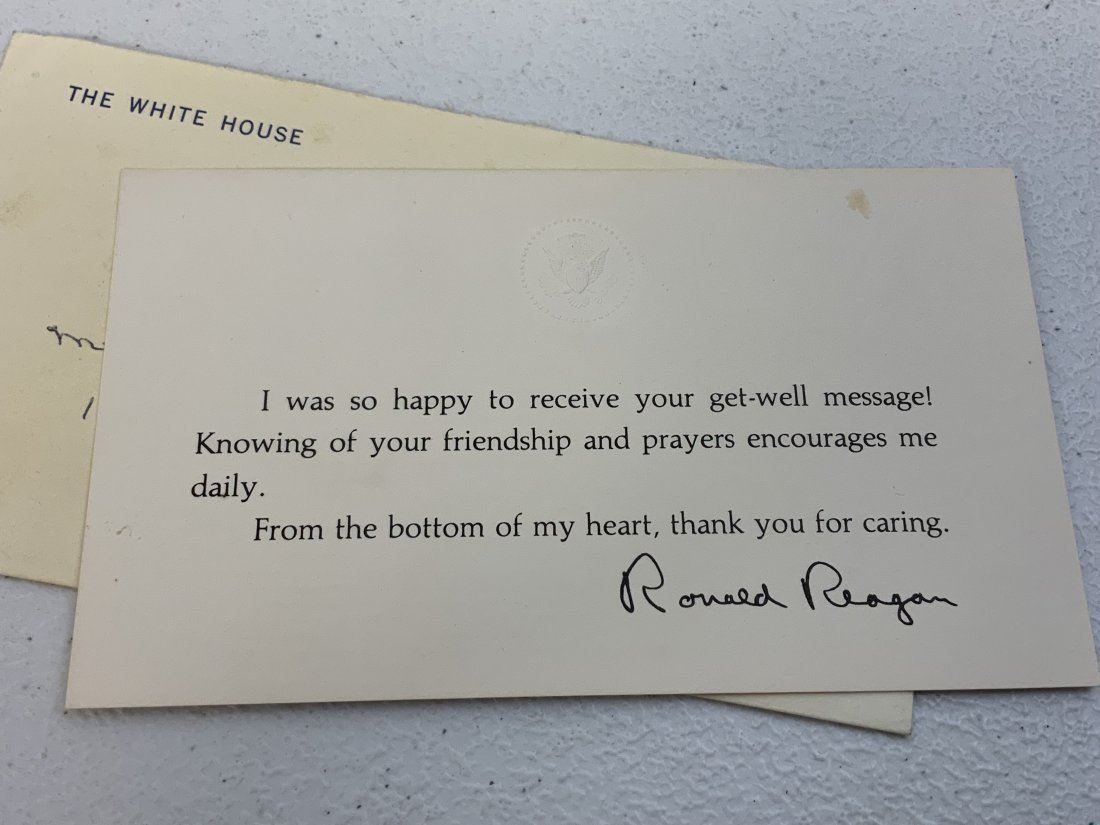 THE WHITE HOUSE
I was so happy to receive your get-well message!
Knowing of your friendship and prayers encourages me
daily.
From the bottom of my heart, thank you for caring.
Ronald Reagan